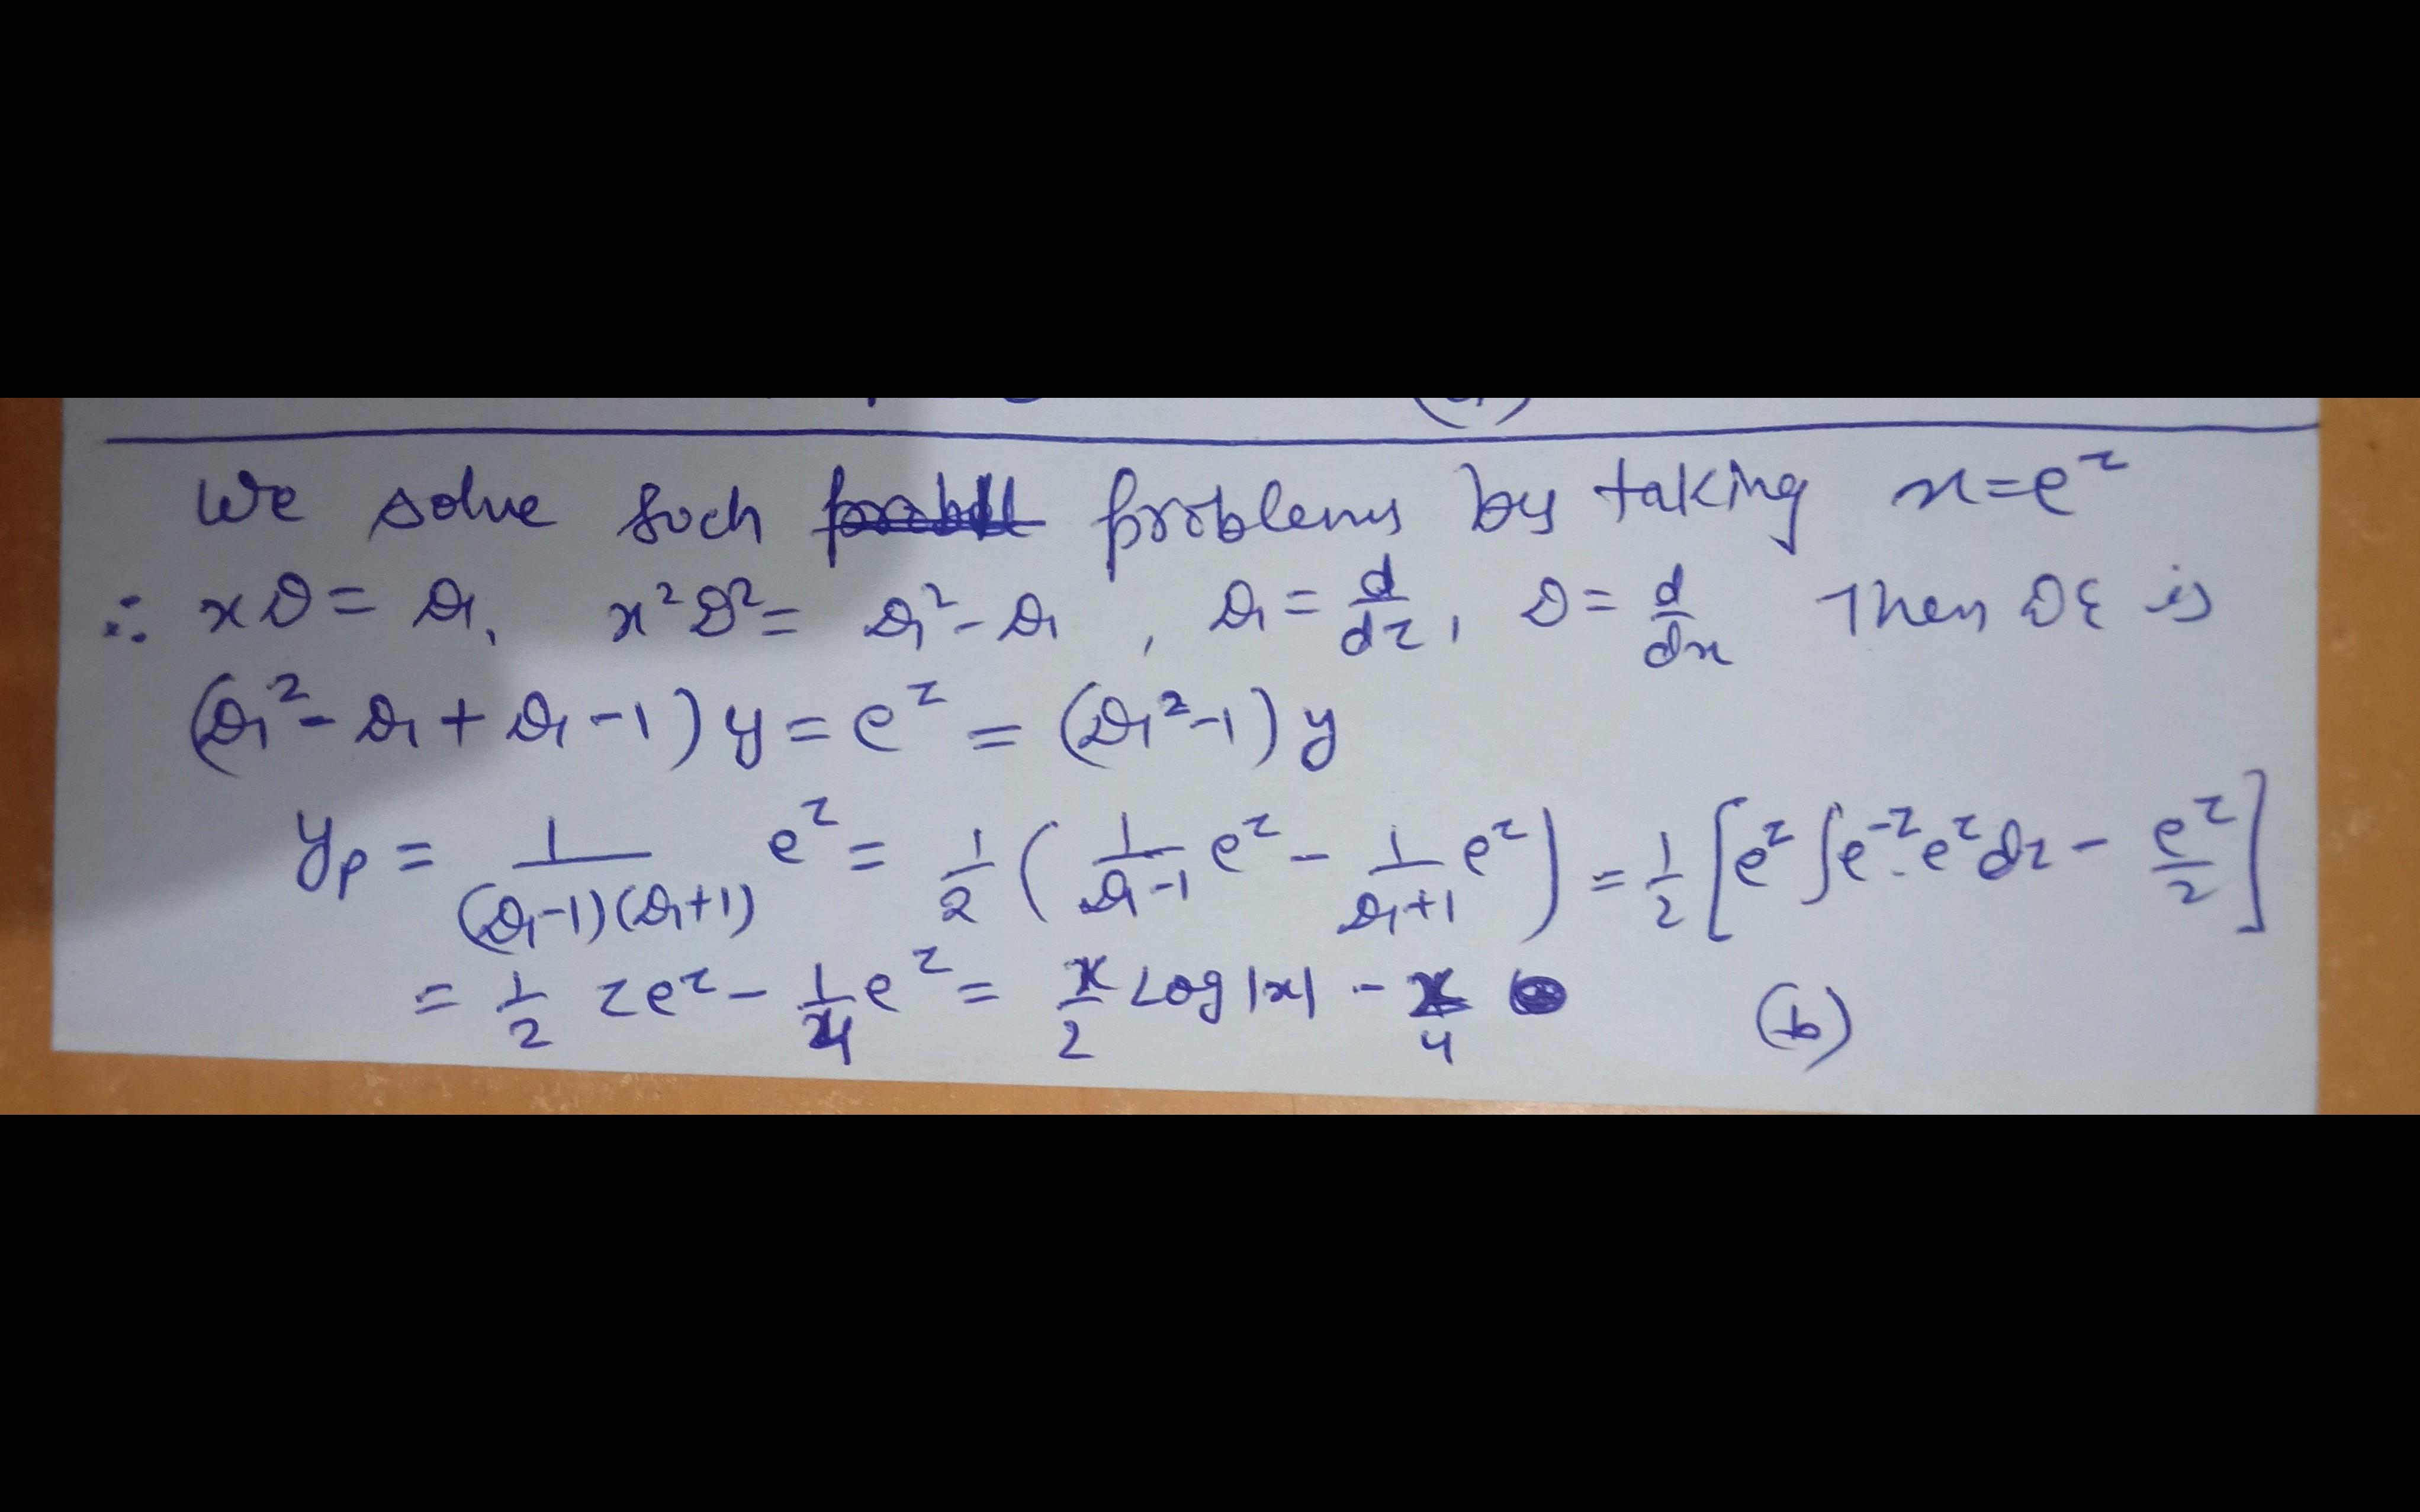 We solve such problems by taking x=e^z
∴ xD = D₁, x²D² = D₁² - D₁, D₁ = d/dz, D = d/dx Then DE is
(D₁² - D₁ + D₁ - 1) y = e^z = (D₁² - 1) y
y_p = 1/((D₁-1)(D₁+1)) e^z = 1/2 (1/(D₁-1) e^z - 1/(D₁+1) e^z) = 1/2 [e^z ∫e^-z e^z dz - e^z/2]
= 1/2 z e^z - 1/4 e^z = x/2 Log|x| - x/4 (b)